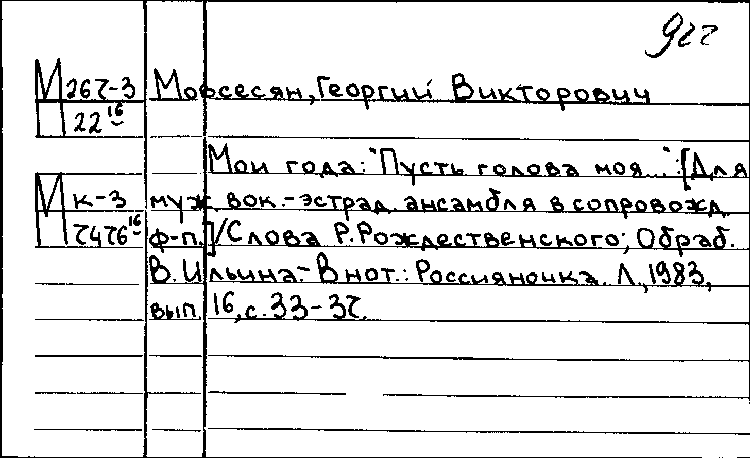 922
М 267-3 Мовсесян, Георгий Викторович
П 22 16
Мои года: "Пусть голова моя..." [Для
М к-3 муж. вок.-эстрад. ансамбля в сопровожд.
П 7476 16 ф-п.]/Слова Р. Рождественского; Обраб.
В. Ильина.- В нот.: Россияночка. Л., 1983,
вып. 16, с. 33-37.